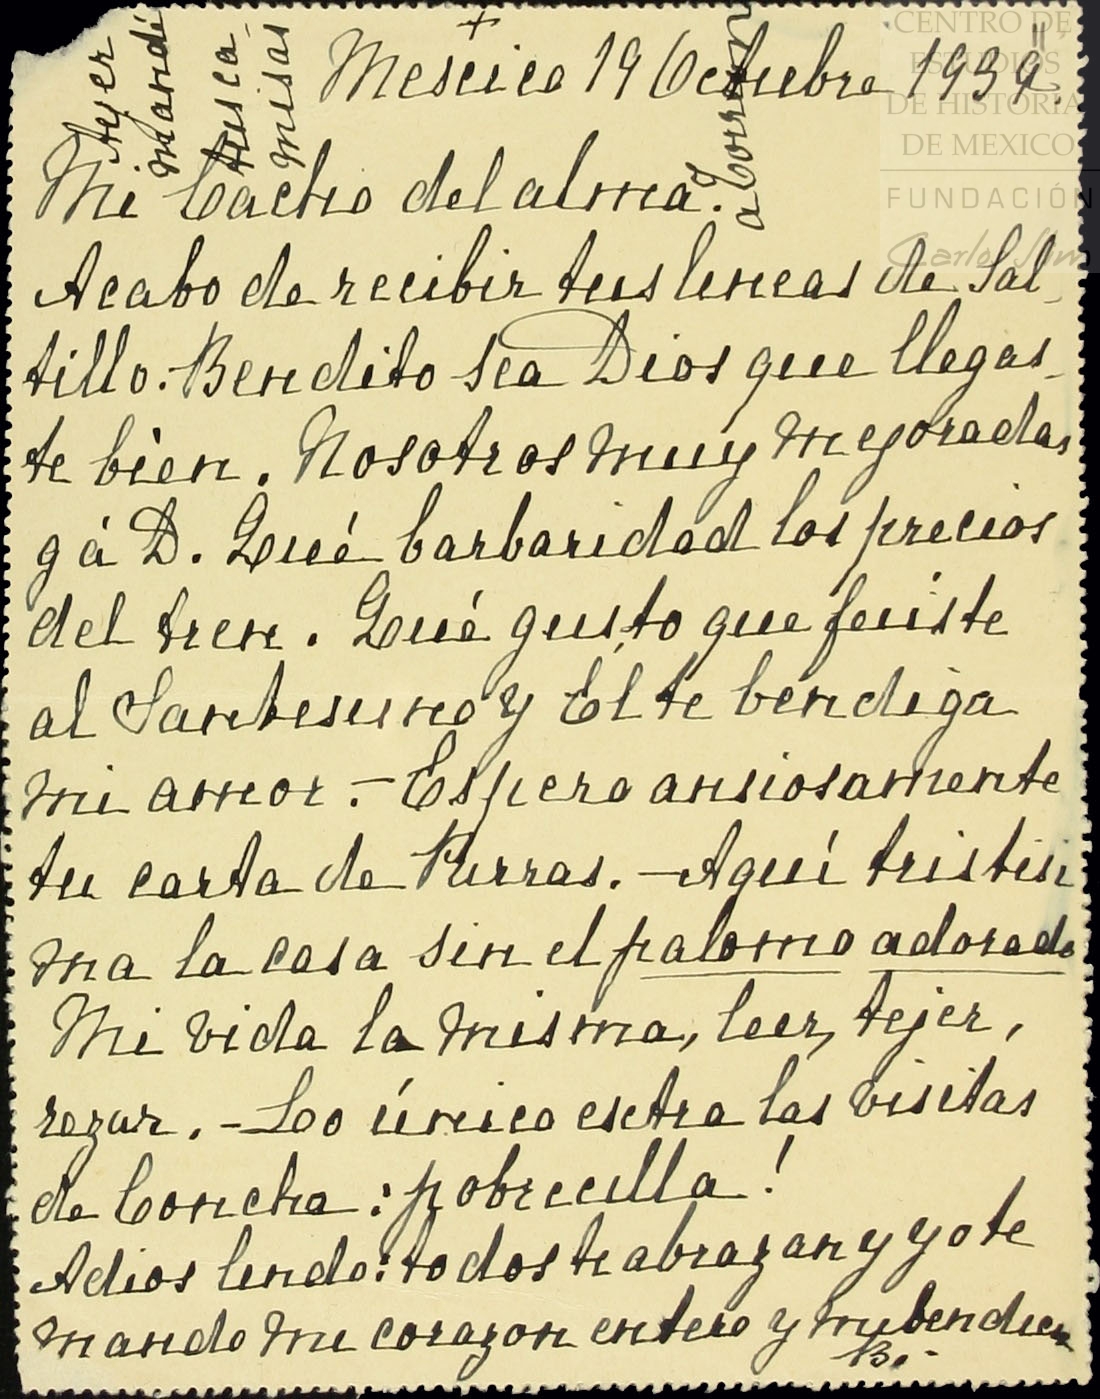 +
Mexico 19 Octubre 1939.
Mi Cacho del alma:
Acabo de recibir tus lineas de Sal-
tillo.- Bendito sea Dios que llegas-
te bien. Nosotros muy mejoradas
g á D. Qué barbaridad los precios
del tren. Qué gusto que fuiste
al Santisimo y Él te bendiga
mi amor.- Espero ansiosamente
tu carta de Parras.- Aquí tristisi
ma la casa sin el palomo adorado
Mi vida la misma, leer, tejer,
rezar.- Lo único extra las visitas
de Concha: pobrecilla!
Adios lindo: todos te abrazan y yo te
mando mi corazon entero y mi bendicion
B.-
Ayer
mandé
tus ca-
misas
a Torreon
CENTRO DE
ESTUDIOS
DE HISTORIA
DE MEXICO
FUNDACIÓN
Carlos Slim